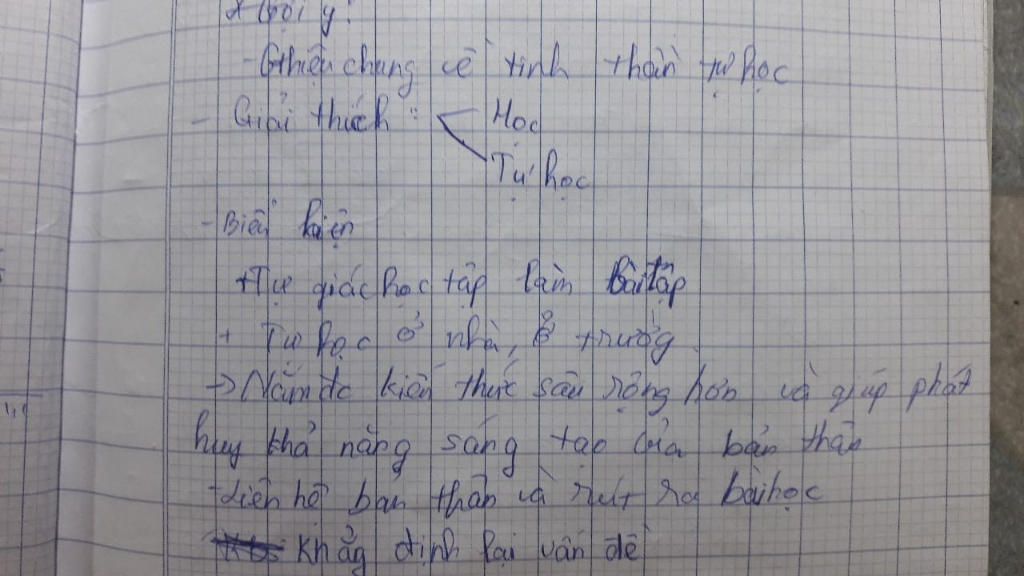 * Gợi ý:
- Gthiệu chung về tinh thần tự học
- Giải thích: Học
Tự học
- Biểu hiện
+ Tự giác học tập làm bài tập
+ Tự học ở nhà, ở trường
-> Nắm đc kiến thức sâu rộng hơn và giúp phát
huy khả năng sáng tạo của bản thân
- Liên hệ bản thân và rút ra bài học
Khẳg định lại vấn đề